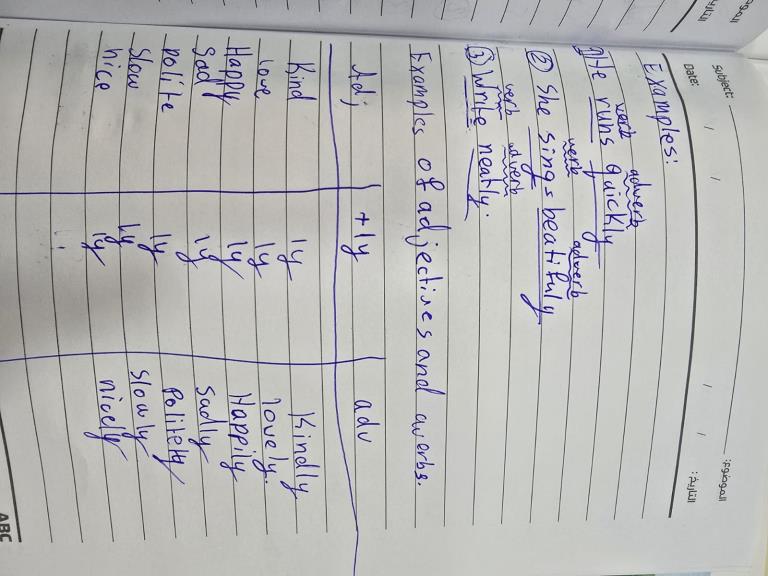 Subject: الموضوع:
Date: / / / / التاريخ:
Examples:
verb adverb
① He runs quickly
verb adverb
② She sings beatifuly
verb adverb
③ Write neatly.
Examples of adjectives and averbs.
Adj +ly adv
Kind ly Kindly
love ly lovely.
Happy ly Happily
Sad ly Sadly
polite ly Politely
Slow ly Slowly
nice ly nicely
ABC